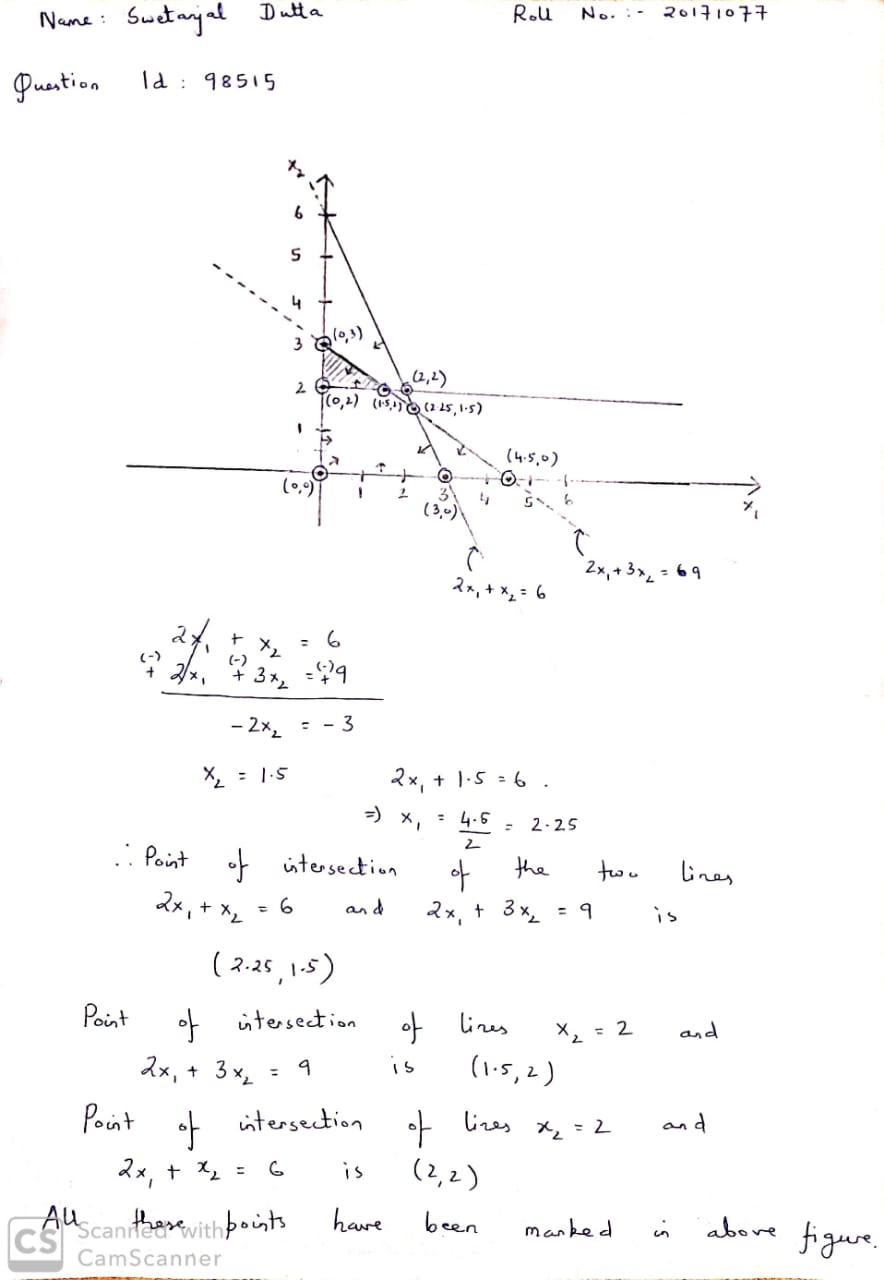 Name : Swetanjal Dutta Roll No. :- 20171077
Question Id : 98515
x₂
6
5
4
3 (0,3)
(2,2)
2 (0,2) (1.5,2) (2.25, 1.5)
1
(4.5,0)
(0,0) 1 2 3 4 5 6
(3,0) x₁
2x₁ + 3x₂ = 69
2x₁ + x₂ = 6
2x₁ + x₂ = 6
(-) (-) (-)
+ 2x₁ + 3x₂ = + 9
- 2x₂ = - 3
x₂ = 1.5 2x₁ + 1.5 = 6 .
⇒ x₁ = 4.5/2 = 2.25
∴ Point of intersection of the two lines
2x₁ + x₂ = 6 and 2x₁ + 3x₂ = 9 is
(2.25, 1.5)
Point of intersection of lines x₂ = 2 and
2x₁ + 3x₂ = 9 is (1.5, 2)
Point of intersection of lines x₂ = 2 and
2x₁ + x₂ = 6 is (2,2)
All these points have been marked in above figure.
CS Scanned with
CamScanner